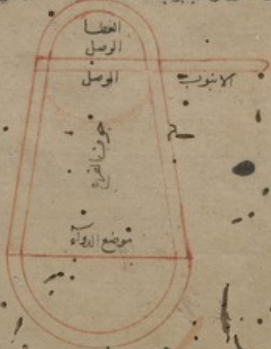 الغطا
الوصل
الوصل
الانبوب
جوف القرع
موضع الدواء